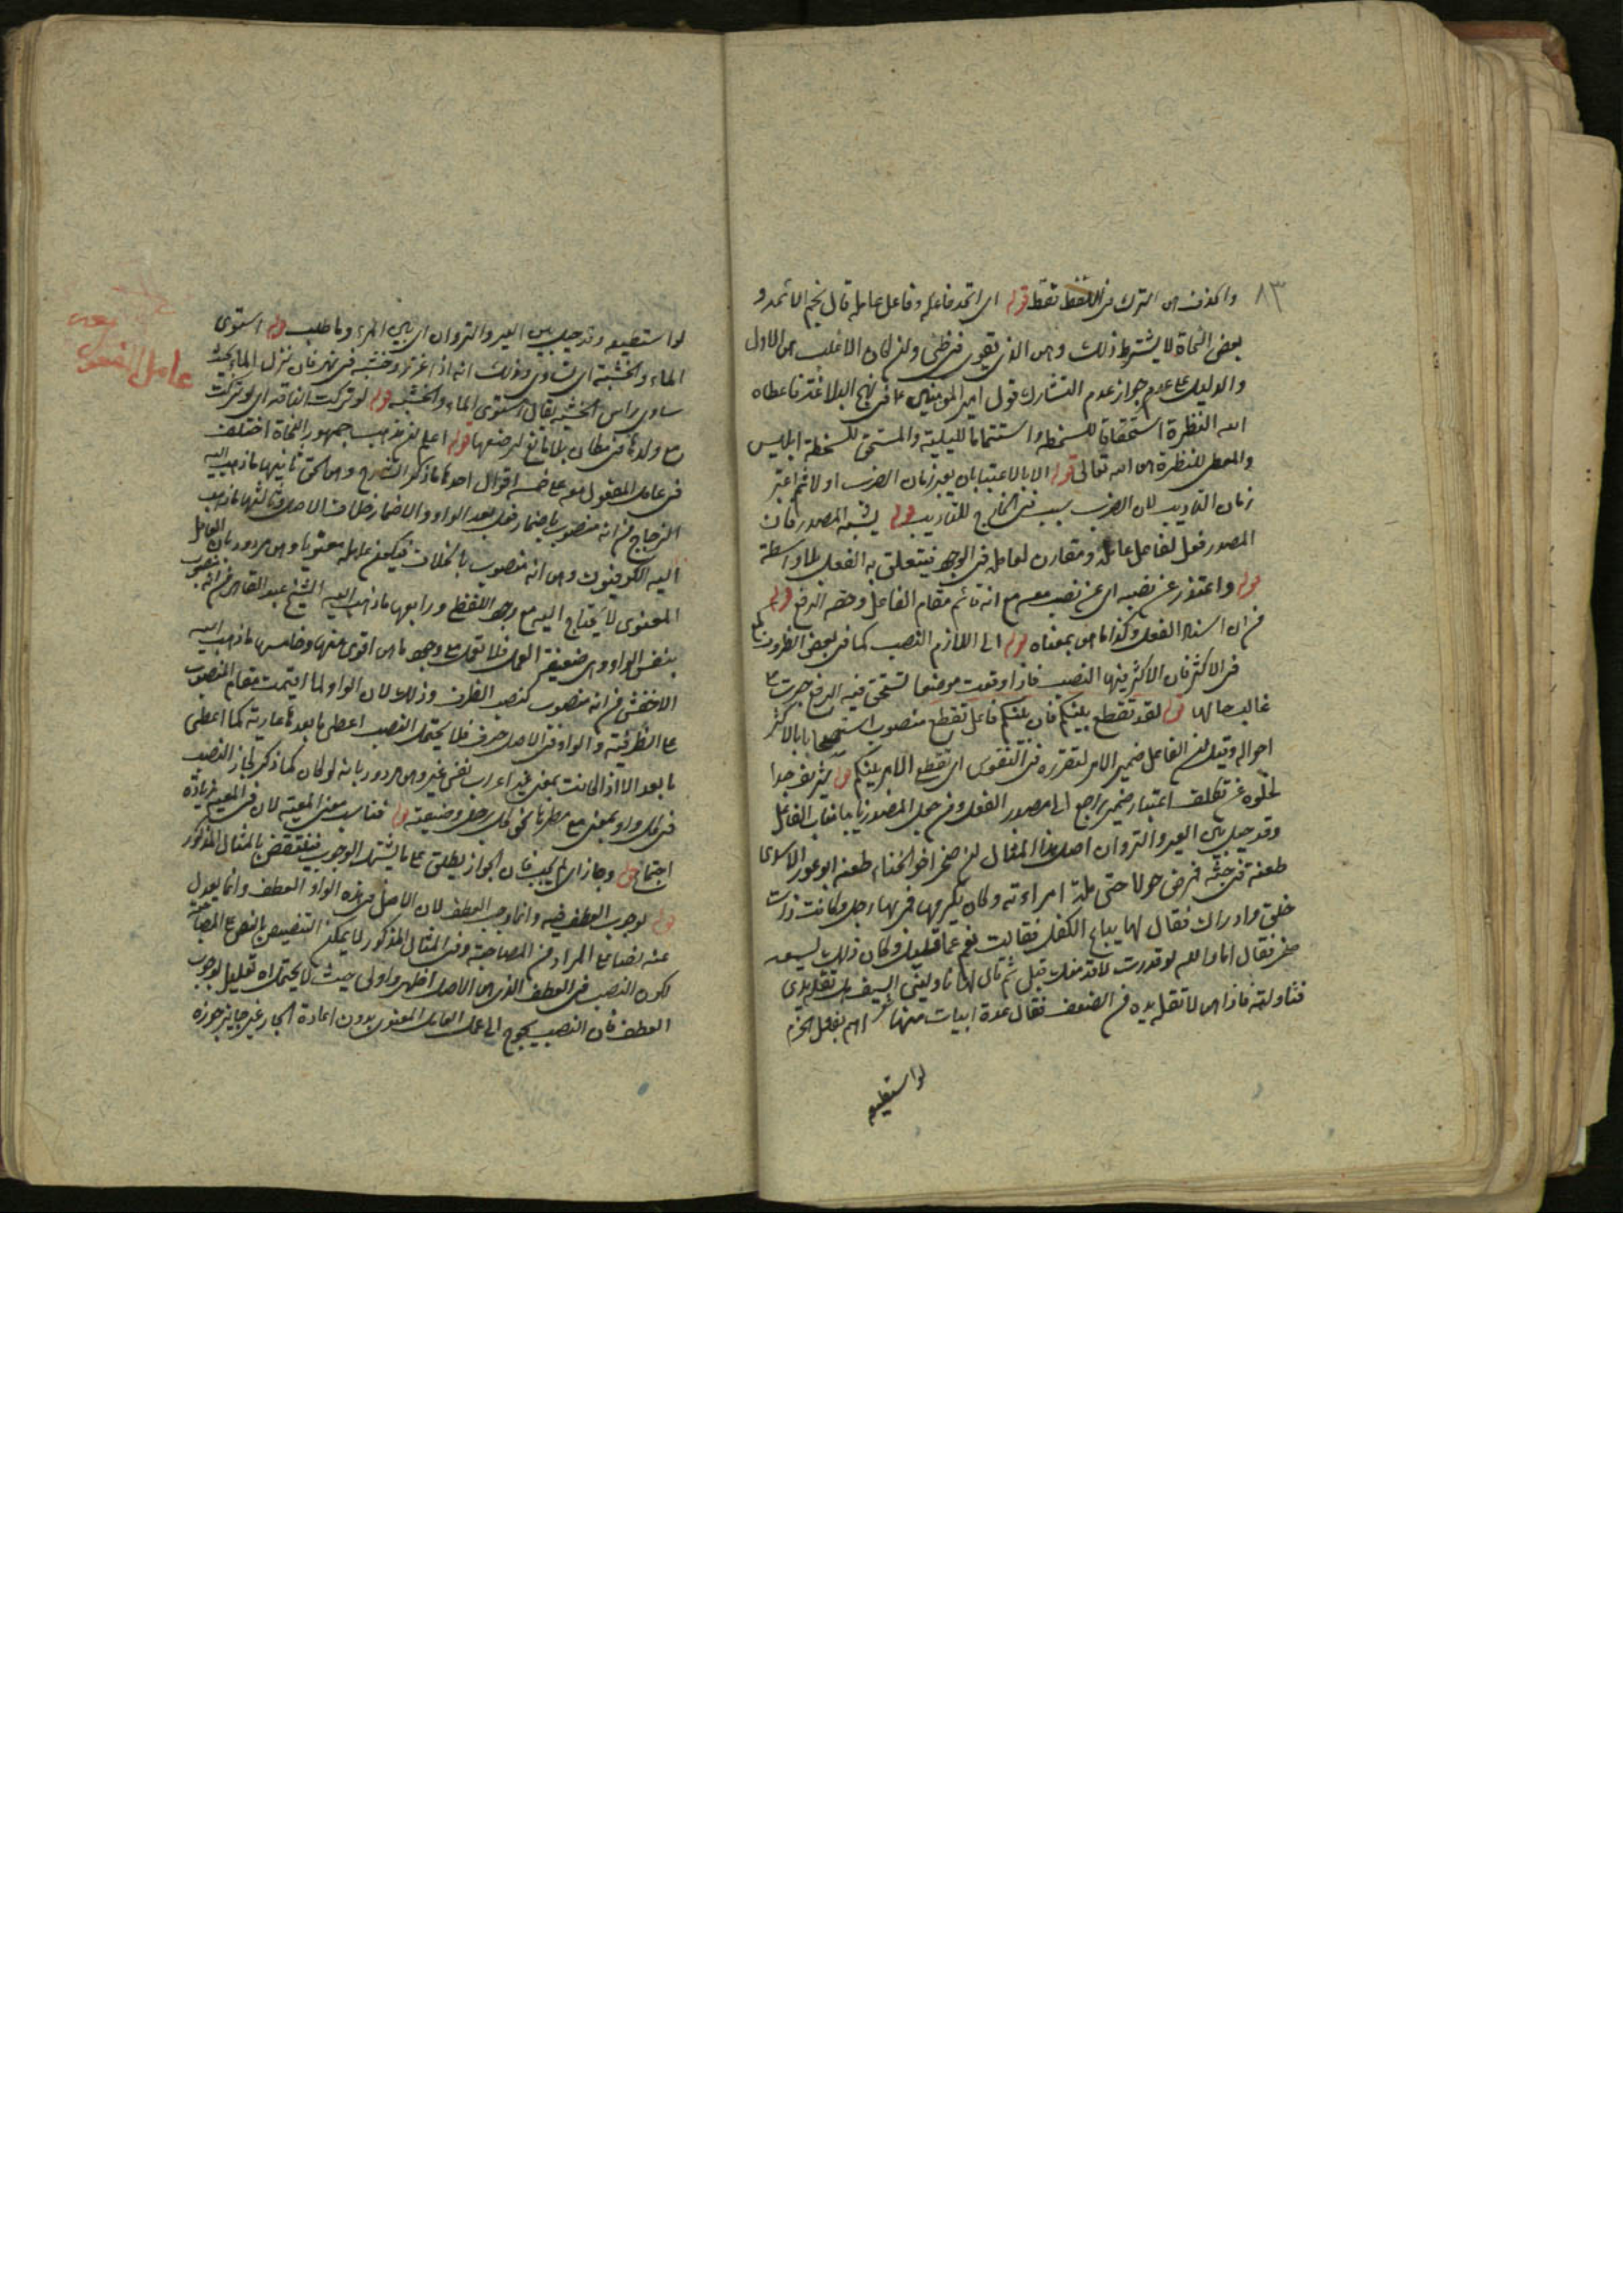 ٨٣
والحذف هو الترك من اللفظ فقط قوله اى اتحد فاعله وفاعل عامله قال نجم الائمه و
بعض النحاة لا يشترط ذلك وهو الذى يقوى فى ظنى وان كان الاغلب هو الاول
والدليل على عدم جواز عدم التشارك قول امير المومنين ع فى نهج البلاغة فاعطاه
الله النظرة استحقاقا للسخطه واستتماما للبلية والمستحق للسخطة ابليس
والمعطى للنظرة هو الله تعالى قوله الا بالاعتبار بان يعد زمان الضرب اولا ثم اعتبر
زمان التاديب لان الضرب سبب فى الخارج للتاديب قوله يشبه المصدر فان
المصدر فعل لفاعل عامله ومقارن لعامله فى الوجود فيتعلق به الفعل بلا واسطة
قوله واعتذر عن نصبه اى عن نصب معه مع انه قائم مقام الفاعل وحقه الرفع قوله
من ان اسناد الفعل وكذا ما هو بمعناه قوله الى اللازم النصب كما فى بعض الظروف
فى الاكثر فان الاكثر فيها النصب فاذا وقعت موضعا تستحق فيه الرفع جرت على
غالب حالها قوله لقد تقطع بينكم فان بينكم فاعل تقطع منصوب استصحابا بالاكثر
احواله وقيل ان الفاعل ضمير الامر لتقرره فى النفوس اى تقطع الامر بينكم قوله شريف جدا
لخلوه عن تكلف اعتبار ضمير راجع الى مصدر الفعل ومن جعل المصدر نايبا مناب الفاعل
وقد حيل بين العير والنزوان اصل هذا المثال ان صخر اخو الخنساء طعنه ابو ثور الاسدى
طعنة فى جنبه فمرض حولا حتى ملته امراءته وكان يكرمها فمر بها رجل وكانت ذات
خلق وادراك فقال لها يباع الكفل فقالت نعم عما قليل وكان ذلك يسمعه
صخر فقال اما والله لو قدرت لاقدمنك قبل ثم قال لها ناولينى السيف هل تقله يدى
فناولته فاذا هو لا تقله يده من الضعف فقال عدة ابيات منها اهم بفعل الحزم
لو استطيعه
لو استطيعه وقد حيل بين العير والنزوان اى بين المرء وما طلب قوله استوى
الماء والخشبة اى تساوى وذلك انه اذا غرز خشبة فى نهر فان نزل الماء بحيث
ساوى راس الخشبه يقال استوى الماء والخشبه قوله لو تركت الناقه اى لو تركت
مع ولدها فى مكان بلا مانع لرضعها قوله اعلم ان مذهب جمهور النحاة اختلف
فى عامل المفعول معه على خمسة اقوال احدها ما ذكر الشارح وهو الحق ثانيها ما ذهب اليه
الزجاج من انه منصوب باضمار فعل بعد الواو والاضمار خلاف الاصل وثالثها ما ذهب
اليه الكوفيون وهو انه منصوب بالخلاف فيكون عامله معنويا وهو مردود بان العامل
المعنوى لا يحتاج اليه مع وجود اللفظ ورابعها ما ذهب اليه الشيخ عبد القاهر من انه منصوب
بنفس الواو وهى ضعيفة العمل فلا تعمل مع وجود ما هو اقوى منها وخامسها ما ذهب اليه
الاخفش من انه منصوب كنصب الظرف وذلك لان الواو لما اقيمت مقام المنصوب
على الظرفية والواو فى الاصل حرف فلا يحتمل النصب اعطى ما بعدها عارية كما اعطى
ما بعد الا اذا كانت بمعنى غير اعراب نفس غير وهو مردود بانه لو كان كما ذكر لجاز النصب
فى كل واو بمعنى مع مطردا نحو كل رجل وضيعته قوله فناسب معنى المعية لان فى المعية زيادة
اجتماع قوله وجاز اى لم يجب فان الجواز يطلق على ما يشمل الوجوب فينتقض بالمثال المذكور
قوله لوجوب العطف فيه وانما وجب العطف لان الاصل فى هذه الواو العطف وانما يعدل
عنه نصا على المراد من المصاحبة وفى المثال المذكور لا يمكن التنصيص بالنصب على المصاحبة
لكون النصب فى العطف الذى هو الاصل اظهر واولى حيث لا يحتمل اه تعليل لوجوب
العطف فان النصب يحوج الى عمل العامل المعنوى بدون اعادة الجار غير جايز جوزه
عامل المفعول
معه